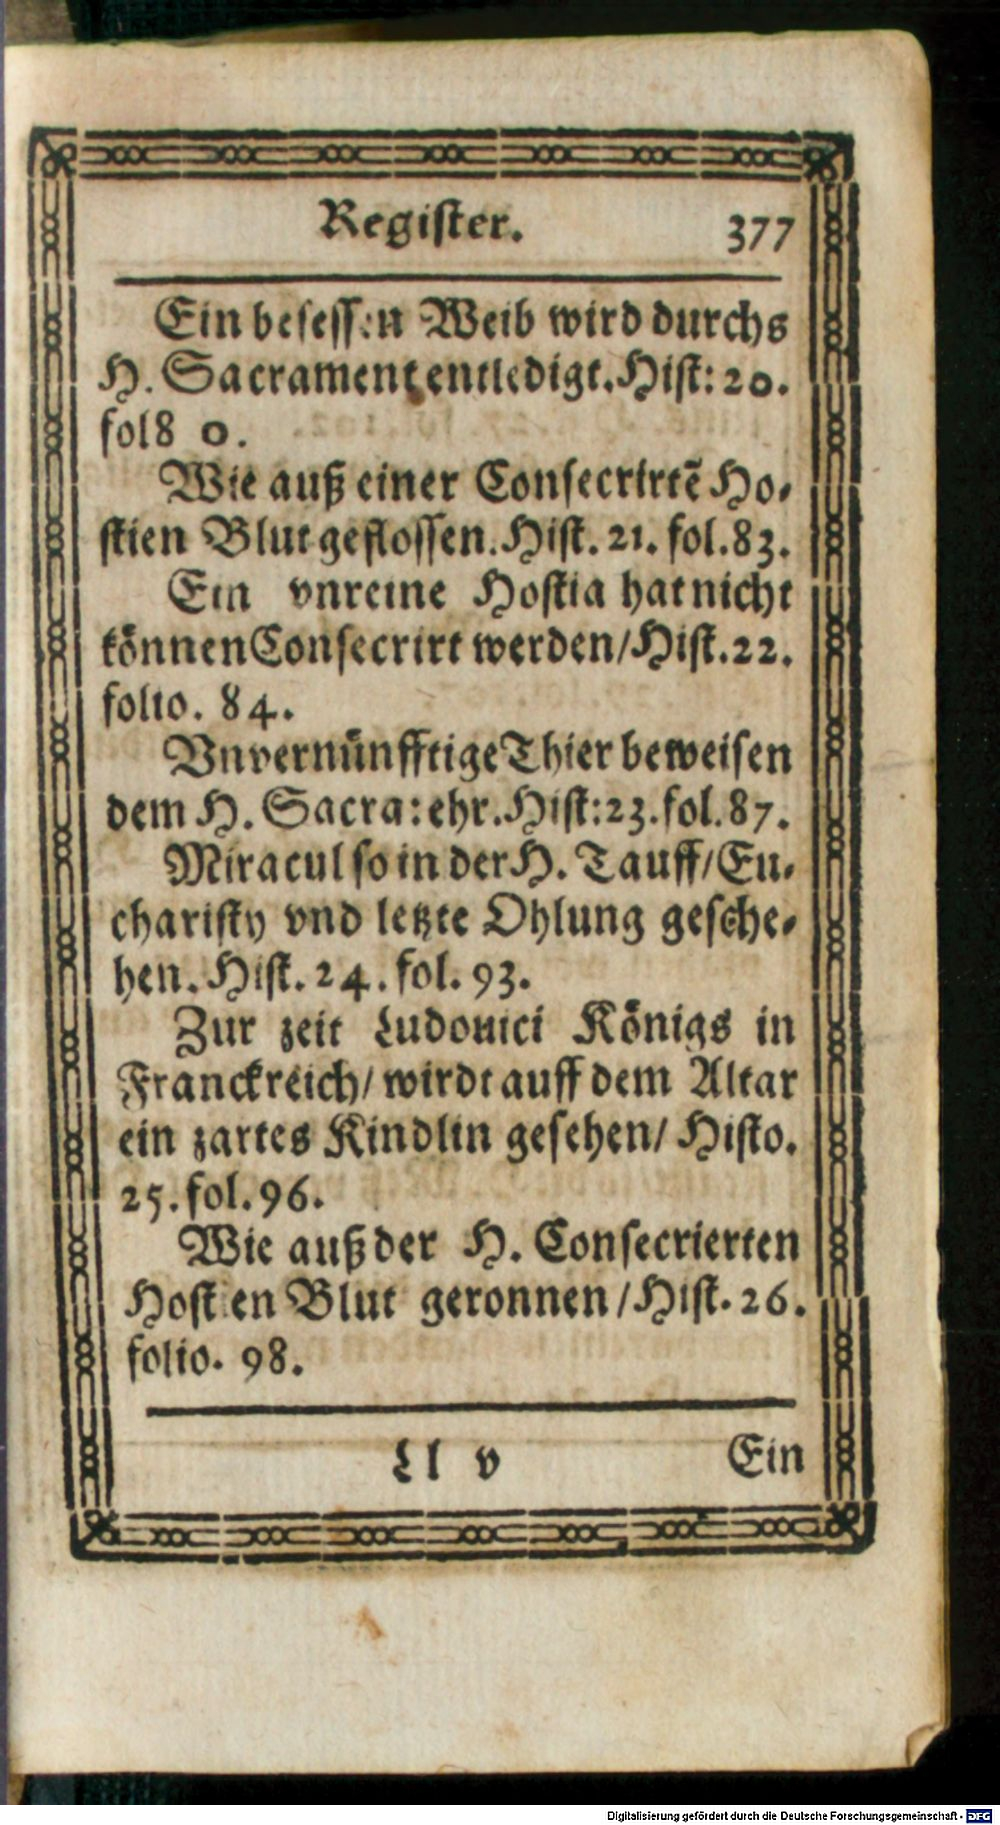 Register. 377
Ein besessen Weib wird durchs
H. Sacrament entledigt. Hist: 20.
fol8 0.
Wie auß einer Consecrirtẽ Ho-
stien Blut geflossen. Hist. 21. fol. 83.
Ein vnreine Hostia hat nicht
können Consecrirt werden/ Hist. 22.
folio. 84.
Vnvernünfftige Thier beweisen
dem H. Sacra: ehr. Hist: 23. fol. 87.
Miracul so in der H. Tauff/ Eu-
charisty vnd letzte Ohlung gesche-
hen. Hist. 24. fol. 93.
Zur zeit Ludouici Königs in
Franckreich/ wirdt auff dem Altar
ein zartes Kindlin gesehen/ Histo.
25. fol. 96.
Wie auß der H. Consecrierten
Hostien Blut geronnen/ Hist. 26.
folio. 98.
Ll v Ein
Digitalisierung gefördert durch die Deutsche Forschungsgemeinschaft - DFG